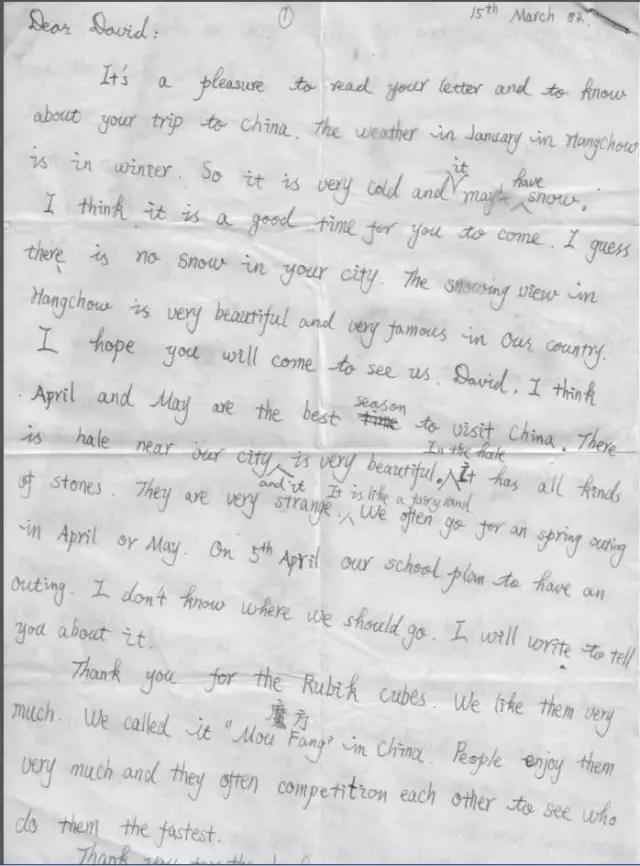 ① 15th March 82.
Dear David:
It's a pleasure to read your letter and to know
about your trip to China. The weather in January in Hangchow
is in winter. So it is very cold and it may have snow.
I think it is a good time for you to come. I guess
there is no snow in your city. The snowing view in
Hangchow is very beautiful and very famous in our country.
I hope you will come to see us. David, I think
April and May are the best season to visit China. There
is hale near our city and it is very beautiful. In the hale it has all kinds
of stones. They are very strange. It is like a fairy land. We often go for an spring outing
in April or May. On 5th April our school plan to have an
outing. I don't know where we should go. I will write to tell
you about it.
Thank you for the Rubik cubes. We like them very
much. We called it "Mou Fang" 魔方 in China. People enjoy them
very much and they often competition each other to see who
do them the fastest.
Thank you for the